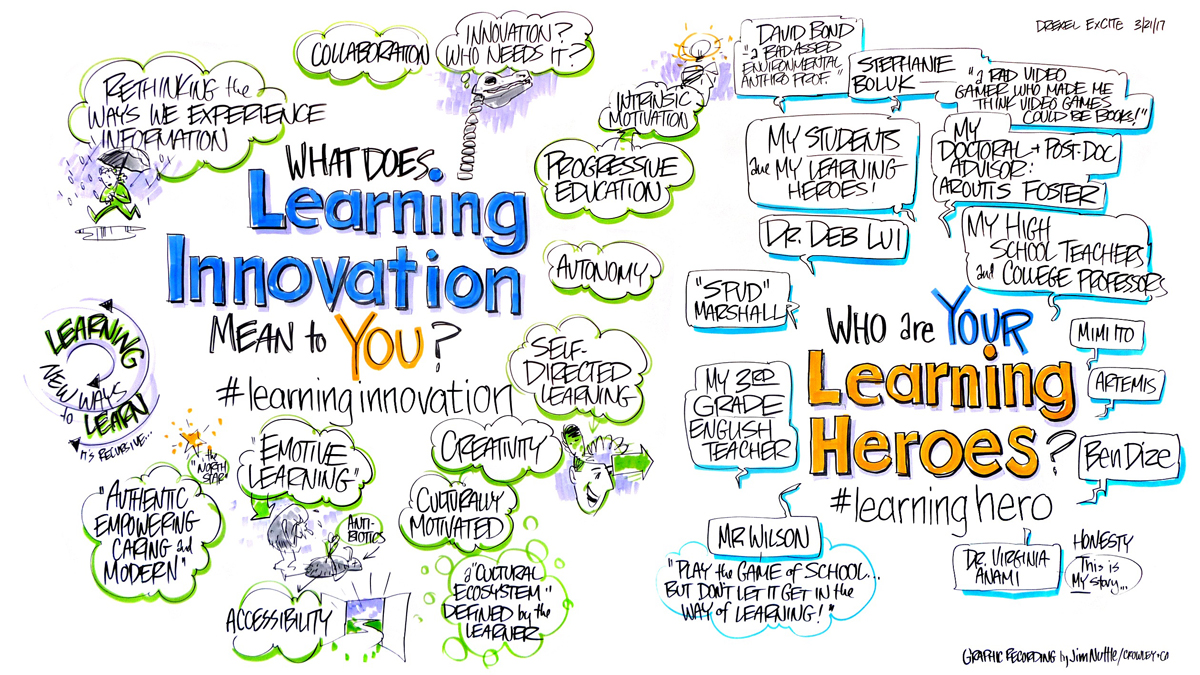 DREXEL EXCITE 3/21/17
COLLABORATION
INNOVATION?
WHO NEEDS IT?
RETHINKING the
WAYS WE EXPERIENCE
INFORMATION
WHAT DOES
Learning
Innovation
MEAN to YOU?
#learninginnovation
INTRINSIC
MOTIVATION
PROGRESSIVE
EDUCATION
AUTONOMY
SELF-
DIRECTED
LEARNING
CREATIVITY
CULTURALLY
MOTIVATED
a "CULTURAL
ECOSYSTEM"
DEFINED by the
LEARNER
LEARNING
NEW WAYS
to LEARN
IT'S RECURSIVE...
the
"NORTH
STAR"
"AUTHENTIC
EMPOWERING
CARING and
MODERN"
"EMOTIVE
LEARNING"
ANTI-
BIOTICS
ACCESSIBILITY
DAVID BOND
"a BADASSED
ENVIRONMENTAL
ANTHRO PROF."
STEPHANIE
BOLUK
"a RAD VIDEO
GAMER WHO MADE ME
THINK VIDEO GAMES
COULD BE BOOKS!"
MY STUDENTS
are MY LEARNING
HEROES!
MY
DOCTORAL → POST-DOC
ADVISOR:
AROUTIS FOSTER
DR. DEB LUI
MY HIGH
SCHOOL TEACHERS
and COLLEGE PROFESSORS
"SPUD"
MARSHALL
WHO are YOUR
Learning
Heroes?
#learninghero
MIMI ITO
ARTEMIS
Ben Dize
MY 3RD
GRADE
ENGLISH
TEACHER
MR WILSON
"PLAY the GAME of SCHOOL...
BUT DON'T LET IT GET IN the
WAY of LEARNING!"
DR. VIRGINIA
ANAMI
HONESTY
This is
MY story...
GRAPHIC RECORDING by Jim Nuttle/CROWLEY+CO